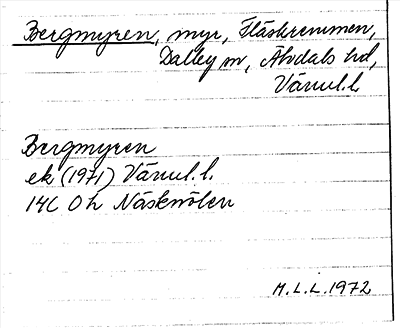 Bergmyren, myr, Fläskremmen,
Dalby sn, Älvdals hd,
Värml. l.
Bergmyren
ek (1971) Värml. l.
14C 0h Näsknölen
M.L.L. 1972